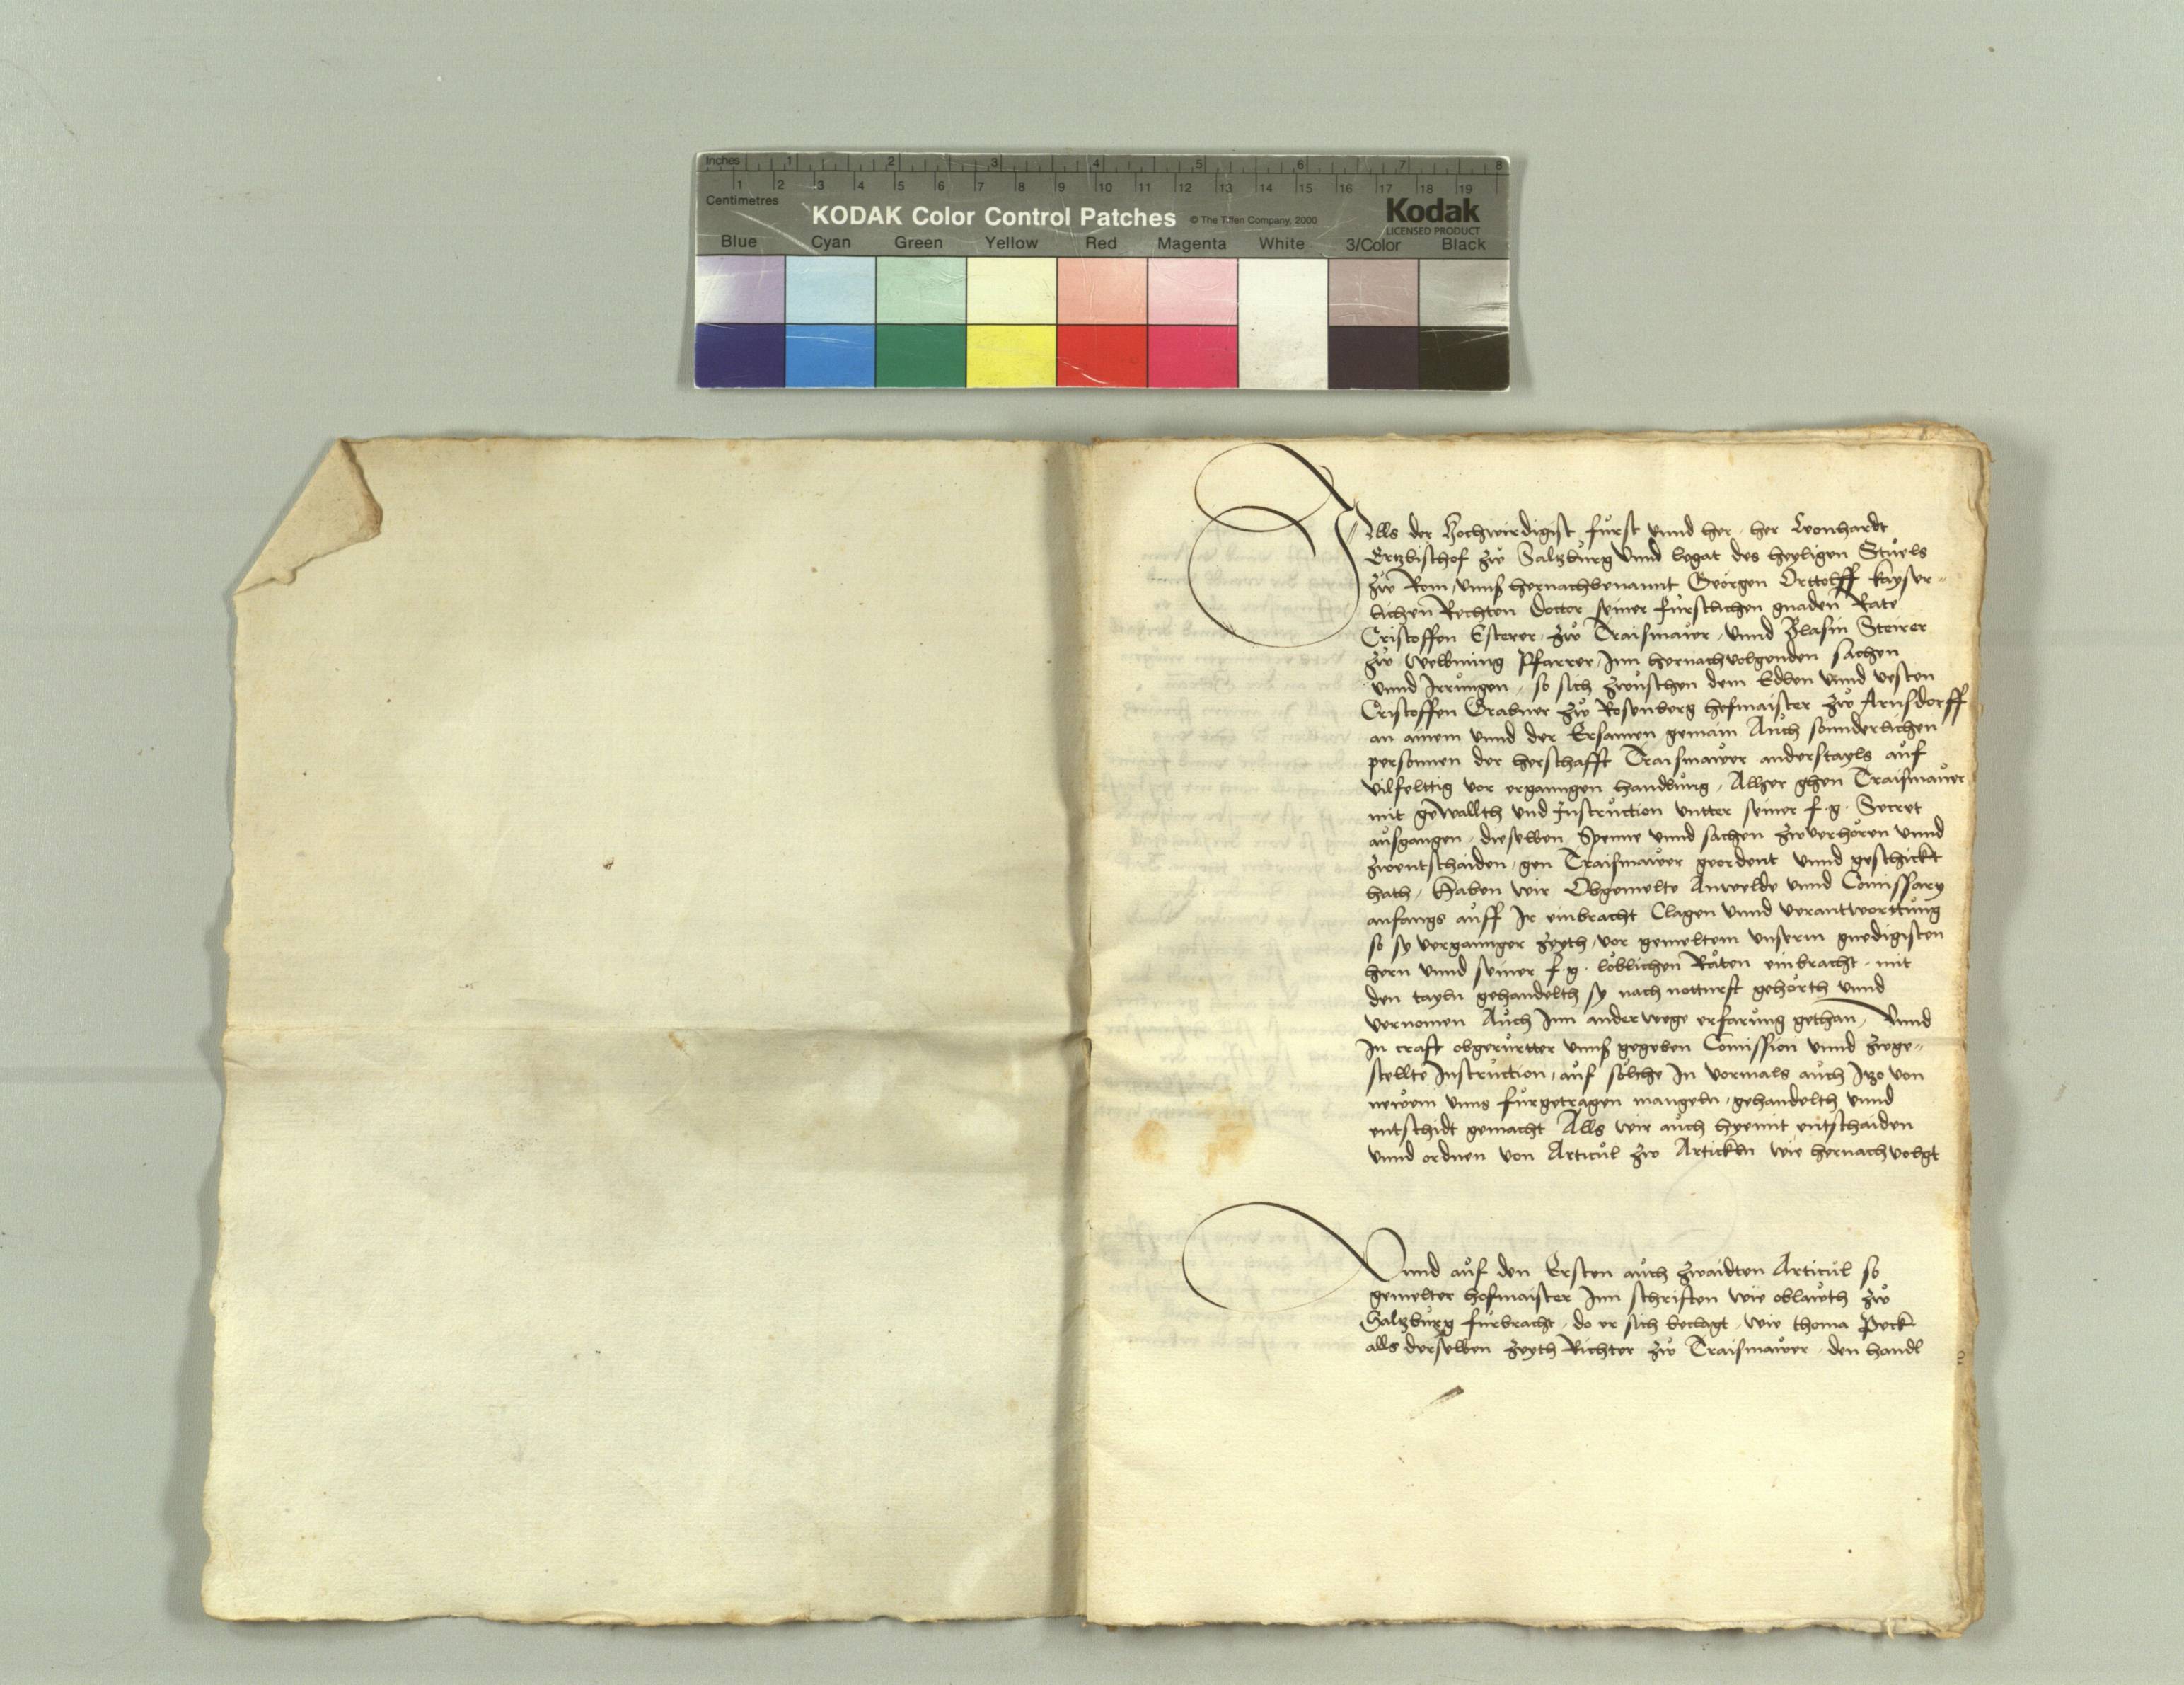 Inches 1 2 3 4 5 6 7 8
1 2 3 4 5 6 7 8 9 10 11 12 13 14 15 16 17 18 19
Centimetres
KODAK Color Control Patches © The Tiffen Company, 2000 Kodak
LICENSED PRODUCT
Blue Cyan Green Yellow Red Magenta White 3/Color Black
Alls der Hochwirdigist fürst vnnd her, her Leonhardt
Ertzbischof zw Saltzburg vnnd legat des heyligen Stuels
zw Rom, vnnß hernachbenannt Georgen Orttolff kayser-
lichen Rechten Doctor seiner fürstlichen gnaden Rate
Cristoffen Esterer zw Traismawer, vnnd Blasin Steirer
zw Welbming Pfarrer, Inn hernachvolgenden sachen
vnnd Irrungen, so sich zwuschen dem Edlen vnnd vesten
Cristoffen Grabner zw Rosenberg hofmaister zw Arnsdorff
an ainem vnnd der Ersamen gemain Auch sonnderlichen
personnen der herschafft Traismawer anderstayls auf
vilfelttig vor erganngen handlung, Alher ghen Traismauer
mit gewallth vnd Instruction vntter seiner f. g. Secret
ausgangen, dieselben Spenne vnnd sachen zwverhören vnnd
zwentschaiden, gen Traismawer geordent vnnd geschickt
hath, Haben wir Obgemelte Anwelde vnnd Comissary
anfangs auff Ir einbracht Clagen vnnd verantworttung
so sy verganngner zeyth, vor gemeltem vnserm gnedigisten
hern vnnd seiner f. g. löblichen Räten einbracht, mit
den tayln gehandelth sy nach notturft gehörth vnnd
vernomen Auch Inn ander wege erfarung gethan, Vnnd
In craft obgerürtter vnnß gegeben Comission vnnd zwge-
stellte Instruction, auf solche In vormals auch Itzo von
newem vnns fürgetragen mangeln, gehandelth vnnd
entschidt gemacht Alls wir auch hyemit entschaiden
vnnd ordnen von Articul zw Artickln wie hernachvolgt
Vnnd auf den Ersten auch zwaidten Articul so
gemelter hofmaister Inn schriften wie oblawth zw
Saltzburg fürbracht, do er sich beclagt, wie thoma Peck
alls derselben zeyth Richter zw Traismawer, den handl